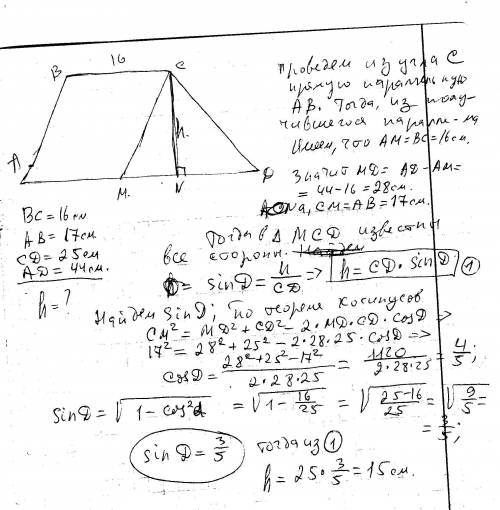 16
B C
Проведем из угла C
прямую параллельную
AB. Тогда, из полу-
чившегося паралле-ма
имеем, что AM=BC=16см.
h
A M N D
Значит MD = AD-AM=
= 44-16=28см.
а, CM=AB=17см.
BC=16см
AB=17см.
CD=25см
AD=44см.
h=?
Тогда в Δ MCD известны
все стороны.
sinD = h/CD => h=CD·sinD ①
Найдем sinD; по теореме косинусов
CM²=MD²+CD²-2·MD·CD·cosD=>
17²=28²+25²-2·28·25·cosD=>
cosD= 28²+25²-17² / 2·28·25 = 1120 / 2·28·25 = 4/5;
sinD=√1-cos²α = √1-16/25 = √25-16/25 = √9/5 =
= 3/5;
sinD=3/5
тогда из ①
h=25·3/5=15см.